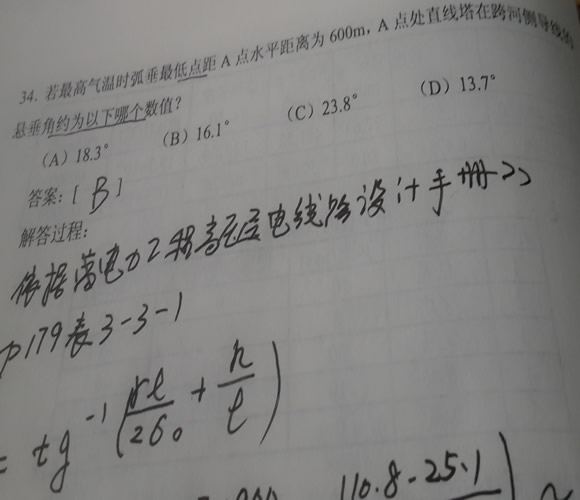 34. 若最高气温时弧垂最低点距 A 点水平距离为 600m，A 点处直线塔在跨河侧导线的
悬垂角约为以下哪个数值？
(A) 18.3° (B) 16.1° (C) 23.8° (D) 13.7°
答案：[ B ]
解答过程：
依据《电力工程高压送电线路设计手册》
P179表3-3-1
= tg⁻¹(γl/2σ₀ + h/l)
110.8-25.1